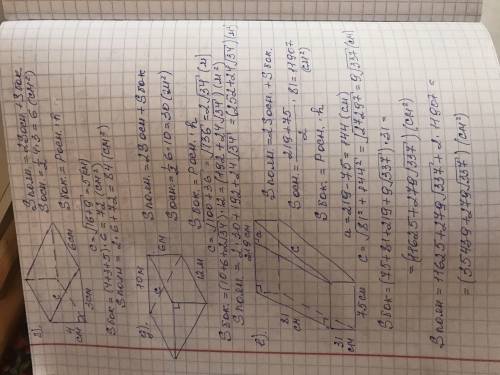 г).
4 см
3 см
6 см
c
Sполн = 2Sосн + Sбок
Sосн = 1/2 · 4 · 3 = 6 (см²)
Sбок = Pосн. · h
c = √16+9 = 5 (см)
Sбок = (4+3+5) · 6 = 72 (см²)
Sполн = 2·6 + 72 = 84 (см²)
д).
10 м
6 м
12 м
c
Sполн = 2Sосн + Sбок
Sосн = 1/2 6·10 = 30 (м²)
Sбок = Pосн. · h
c = √100+36 = √136 = 2√34 (м)
Sбок = (10+6+2√34)·12 = (192+24√34) (м²)
Sполн = 2·30+192+24√34 = (252+24√34) (м²)
е).
219 см
81 см
31 см
75 см
a
c
Sполн = 2Sосн + Sбок
Sосн = 219+75/2 · 81 = 11907 (см²)
Sбок = Pосн. · h
a = 219-75 = 144 (см)
c = √81²+144² = √27297 = 9√337 (см)
Sбок = (75+81+219+9√337) · 31 =
= (11625+279√337) (см²)
Sполн = 11625+279√337+2·11907 =
= (35439+279√337) (см²)